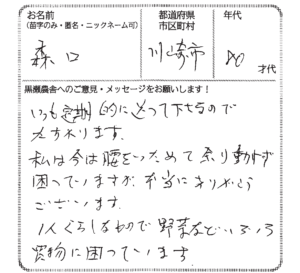 お名前
(苗字のみ・匿名・ニックネーム可)
都道府県
市区町村
年代
森口
川崎市
80
才代
黒瀬農舎へのご意見・メッセージをお願いします!
いつも定期的に送って下さるので
たすかります。
私は今は腰をいためて余り動けず
困っていますが本当にありがとう
ございます。
1人ぐらしなので野菜などいろいろ
買物に困っています